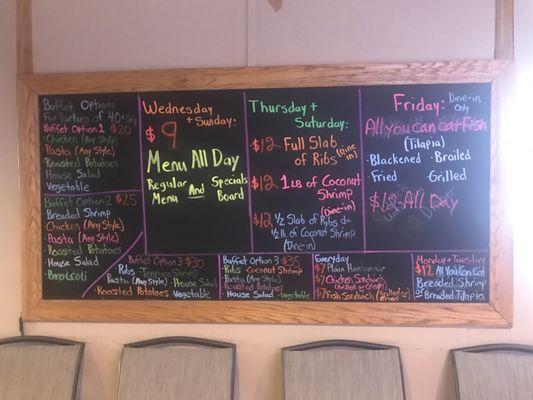 Buffet Options
For Parties of 40+ only
Buffet Option 1 $20
·Chicken (Any Style)
·Pasta (Any Style)
·Roasted Potatoes
·House Salad
·Vegetable
Buffet Option 2 $25
·Breaded Shrimp
·Chicken (Any Style)
·Pasta (Any Style)
·Roasted Potatoes
·House Salad
·Broccoli
Wednesday
+ Sunday:
$9
Menu All Day
Regular And Specials
Menu Board
Thursday +
Saturday:
$12 Full Slab
of Ribs (Dine in)
$12 1 LB of Coconut
Shrimp
(Dine-in)
$12 1/2 Slab of Ribs &
1/2 LB of Coconut Shrimp
(Dine-in)
Friday: Dine-in Only
All you can eat Fish
(Tilapia)
·Blackened ·Broiled
·Fried ·Grilled
$12-All Day
Buffet Option 3 $30
·Ribs ·Shrimp ·House Salad
·Roasted Potatoes ·Vegetable
Buffet Option 3 $35
·Ribs ·Coconut Shrimp
·Pasta (Any Style)
·Roasted Potatoes
·House Salad ·Vegetable
Everyday
$7 Plain Hamburger
$7 Chicken Sandwich
$7 Fish Sandwich
Monday + Tuesday
$12 All You Can Eat
Breaded Shrimp
or Breaded Tilapia